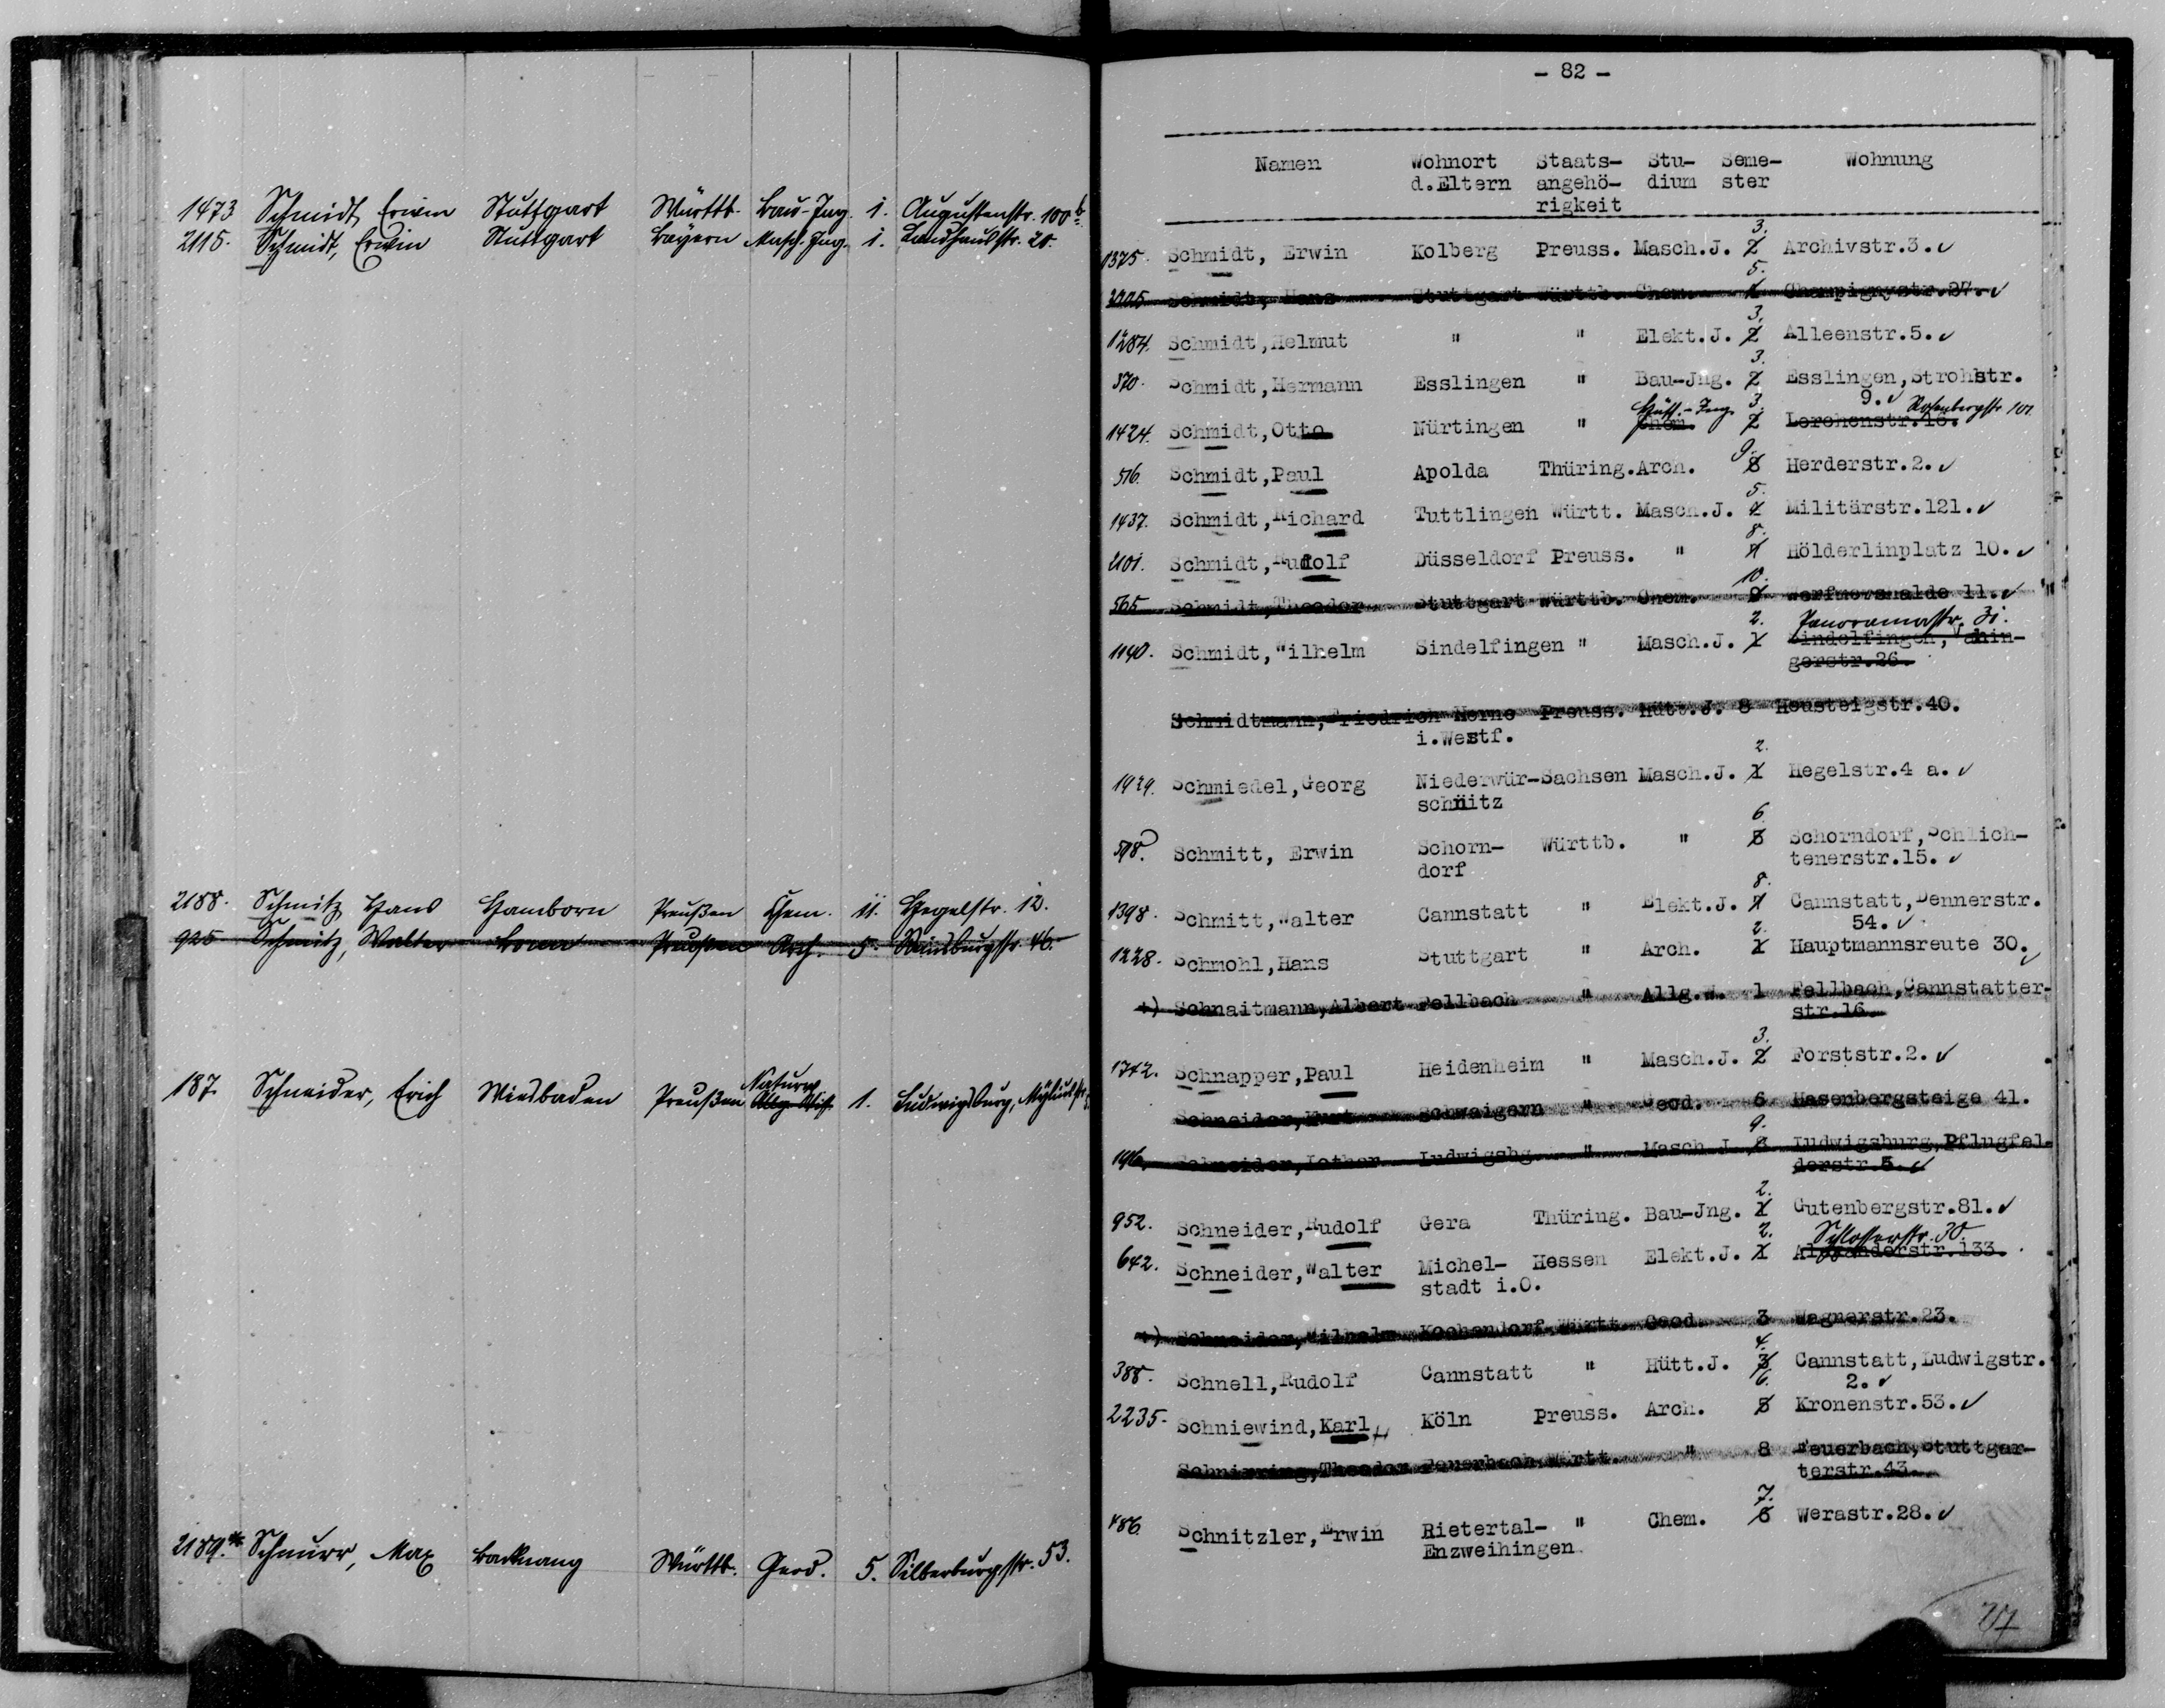 1473 Schmidt, Erwin Stuttgart Württb. Bau-Ing. 1. Augustenstr. 100b
2115. Schmidt, Erwin Stuttgart Bayern Masch. Ing. 1. Landhausstr. 20.
2188. Schmitz, Hans Hamborn Preußen Chem. 11. Hegelstr. 12.
925 Schmitz, Walter Preußen Arch. 5. Reinsburgstr. 46.
Naturw.
187. Schneider, Erich Wiesbaden Preußen Allg. Wiss. 1. Ludwigsburg,
2189.* Schnurr, Max Backnang Württb. Geod. 5. Silberburgstr. 53.
- 82 -
Namen Wohnort Staats- Stu- Seme- Wohnung
d.Eltern angehö- dium ster
rigkeit
3.
1375. Schmidt, Erwin Kolberg Preuss. Masch.J. 2 Archivstr.3. ✓
5.
Schmidt, Hans Stuttgart Württb. Chem. 4 Champignystr.27. ✓
3.
1284. Schmidt,Helmut " " Elekt.J. 2 Alleenstr.5. ✓
3.
370. Schmidt,Hermann Esslingen " Bau-Jng. 2 Esslingen,Strohstr.
9. ✓
Hütt.-Ing. 3. Rosenbergstr. 101.
1424. Schmidt,Otto Nürtingen " Chem. 2 Lerchenstr.16.
9.
516. Schmidt,Paul Apolda Thüring.Arch. 8 Herderstr.2. ✓
5.
1437. Schmidt,Richard Tuttlingen Württ. Masch.J. 4 Militärstr.121. ✓
8.
2101. Schmidt,Rudolf Düsseldorf Preuss. " 7 Hölderlinplatz 10. ✓
10.
565 Schmidt,Theodor Stuttgart Württb. Chem. 9 Werfmershalde 11. ✓
2. Panoramastr. 31.
1140. Schmidt,Wilhelm Sindelfingen " Masch.J. 1 Sindelfingen, Vahin-
gerstr.26.
Schmidtmann,Friedrich Herne Preuss. Hütt.J. 8 Heusteigstr.40.
i.Westf.
2.
1929. Schmiedel,Georg Niederwür-Sachsen Masch.J. 1 Hegelstr.4 a. ✓
schnitz
6.
518. Schmitt, Erwin Schorn- Württb. " 5 Schorndorf,Schlich-
dorf tenerstr.15. ✓
8.
1398. Schmitt,Walter Cannstatt " Elekt.J. 7 Cannstatt,Dennerstr.
54. ✓
2.
1228. Schmohl,Hans Stuttgart " Arch. 1 Hauptmannsreute 30. ✓
+) Schnaitmann,Albert Fellbach " Allg.W. 1 Fellbach,Cannstatter-
str.16.
3.
1742. Schnapper,Paul Heidenheim " Masch.J. 2 Forststr.2. ✓
Schneider,Kurt Schwaigern " Geod. 6 Hasenbergsteige 41.
9.
Schneider,Lothar Ludwigsbg. " Masch.J. 8 Ludwigsburg,Pflugfel-
derstr.5. ✓
2.
952. Schneider,Rudolf Gera Thüring. Bau-Jng. 1 Gutenbergstr.81. ✓
2. Schlosserstr. 30.
642. Schneider,Walter Michel- Hessen Elekt.J. 1 Alexanderstr.133.
stadt i.O.
+) Schneider,Wilhelm Kochendorf Württ. Geod. 3 Wagnerstr.23.
4.
388. Schnell,Rudolf Cannstatt " Hütt.J. 3 Cannstatt,Ludwigstr.
2. ✓
6.
2235. Schniewind,Karl Köln Preuss. Arch. 5 Kronenstr.53. ✓
Schnirring,Theodor Feuerbach Württ. " 8 Feuerbach,Stuttgar-
terstr.43.
7.
486. Schnitzler,Erwin Rietertal- " Chem. 6 Werastr.28. ✓
Enzweihingen